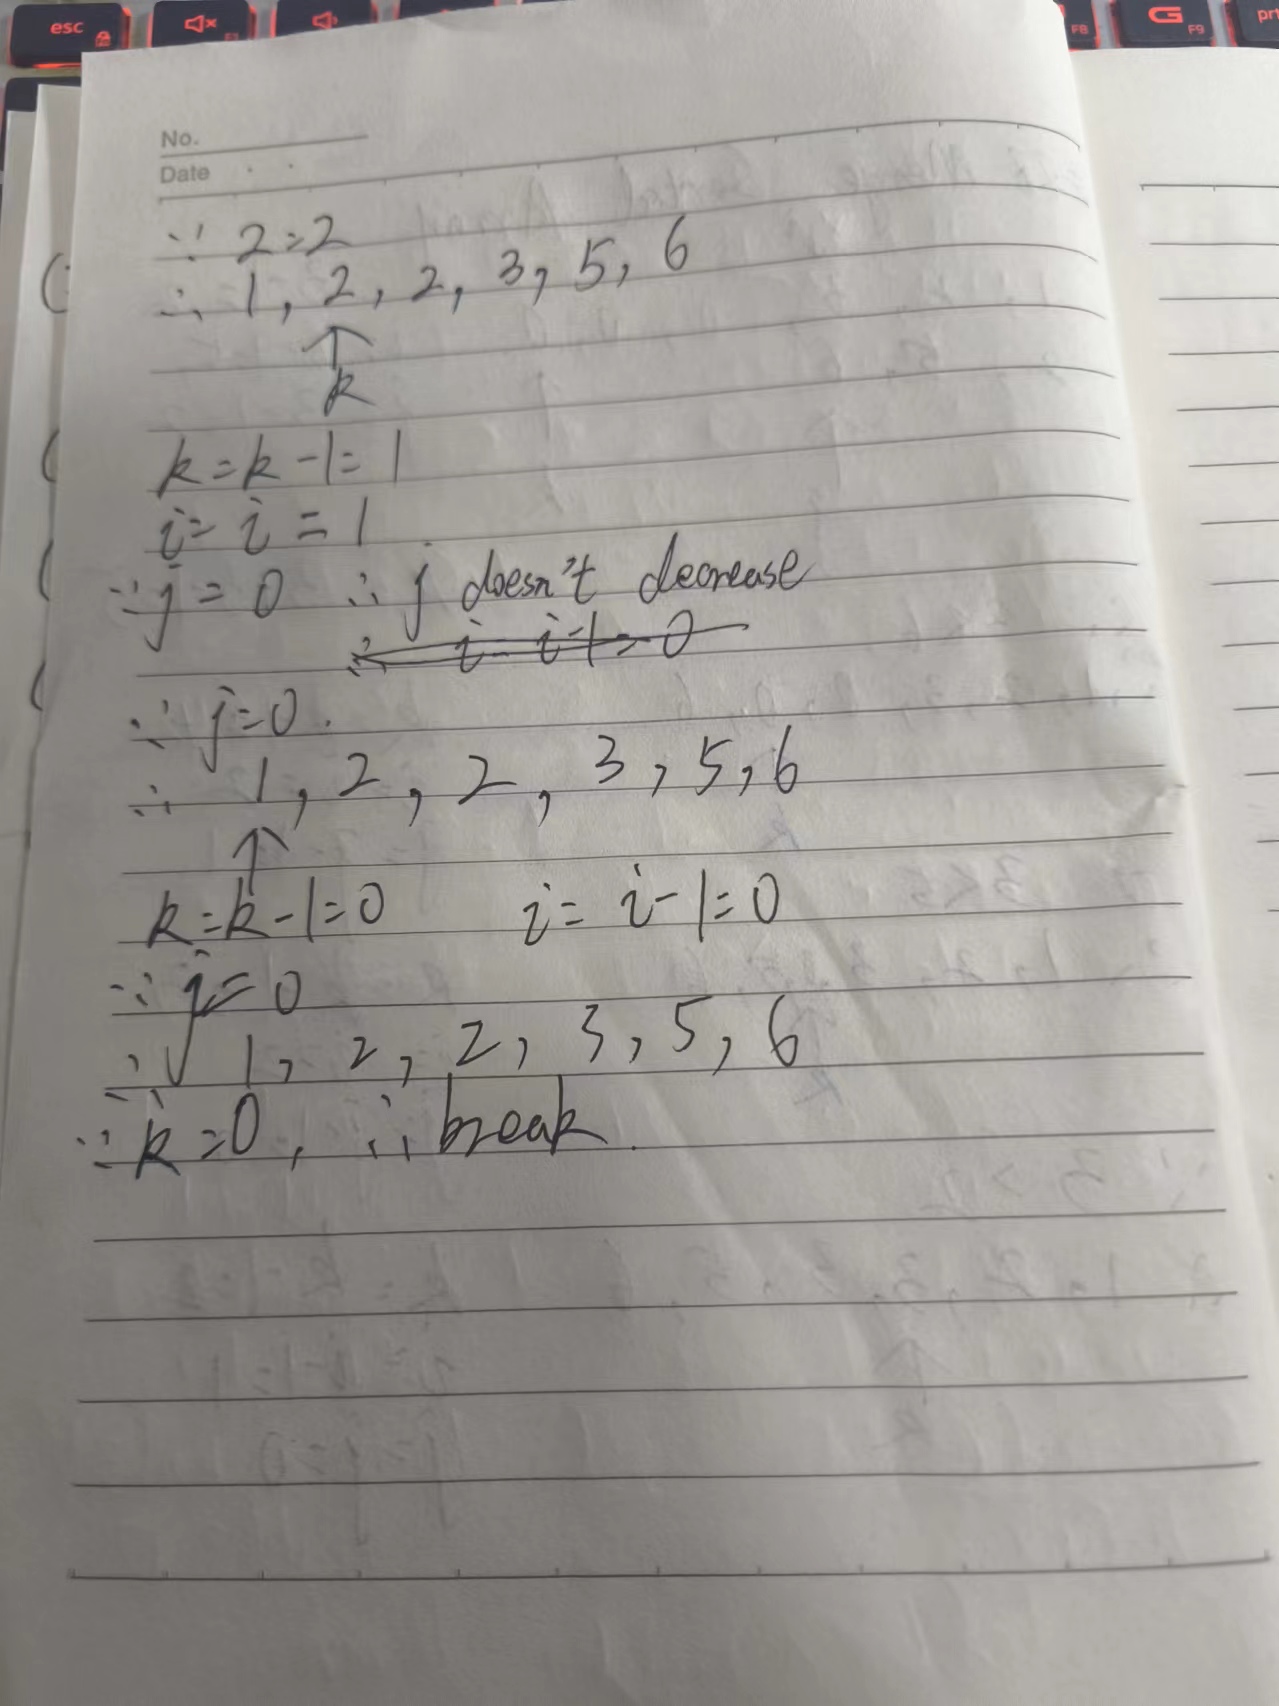 esc
F1
F8
G
F9
prt
No.
Date
∵ 2=2
∴ 1, 2, 2, 3, 5, 6
k
k=k-1=1
i=i=1
∵j=0 ∴ j doesn't decrease
∵ j=0.
∴ 1, 2, 2, 3, 5, 6
k=k-1=0 i=i-1=0
∵ j=0
∴ 1, 2, 2, 3, 5, 6
∵ k=0, ∴ break.